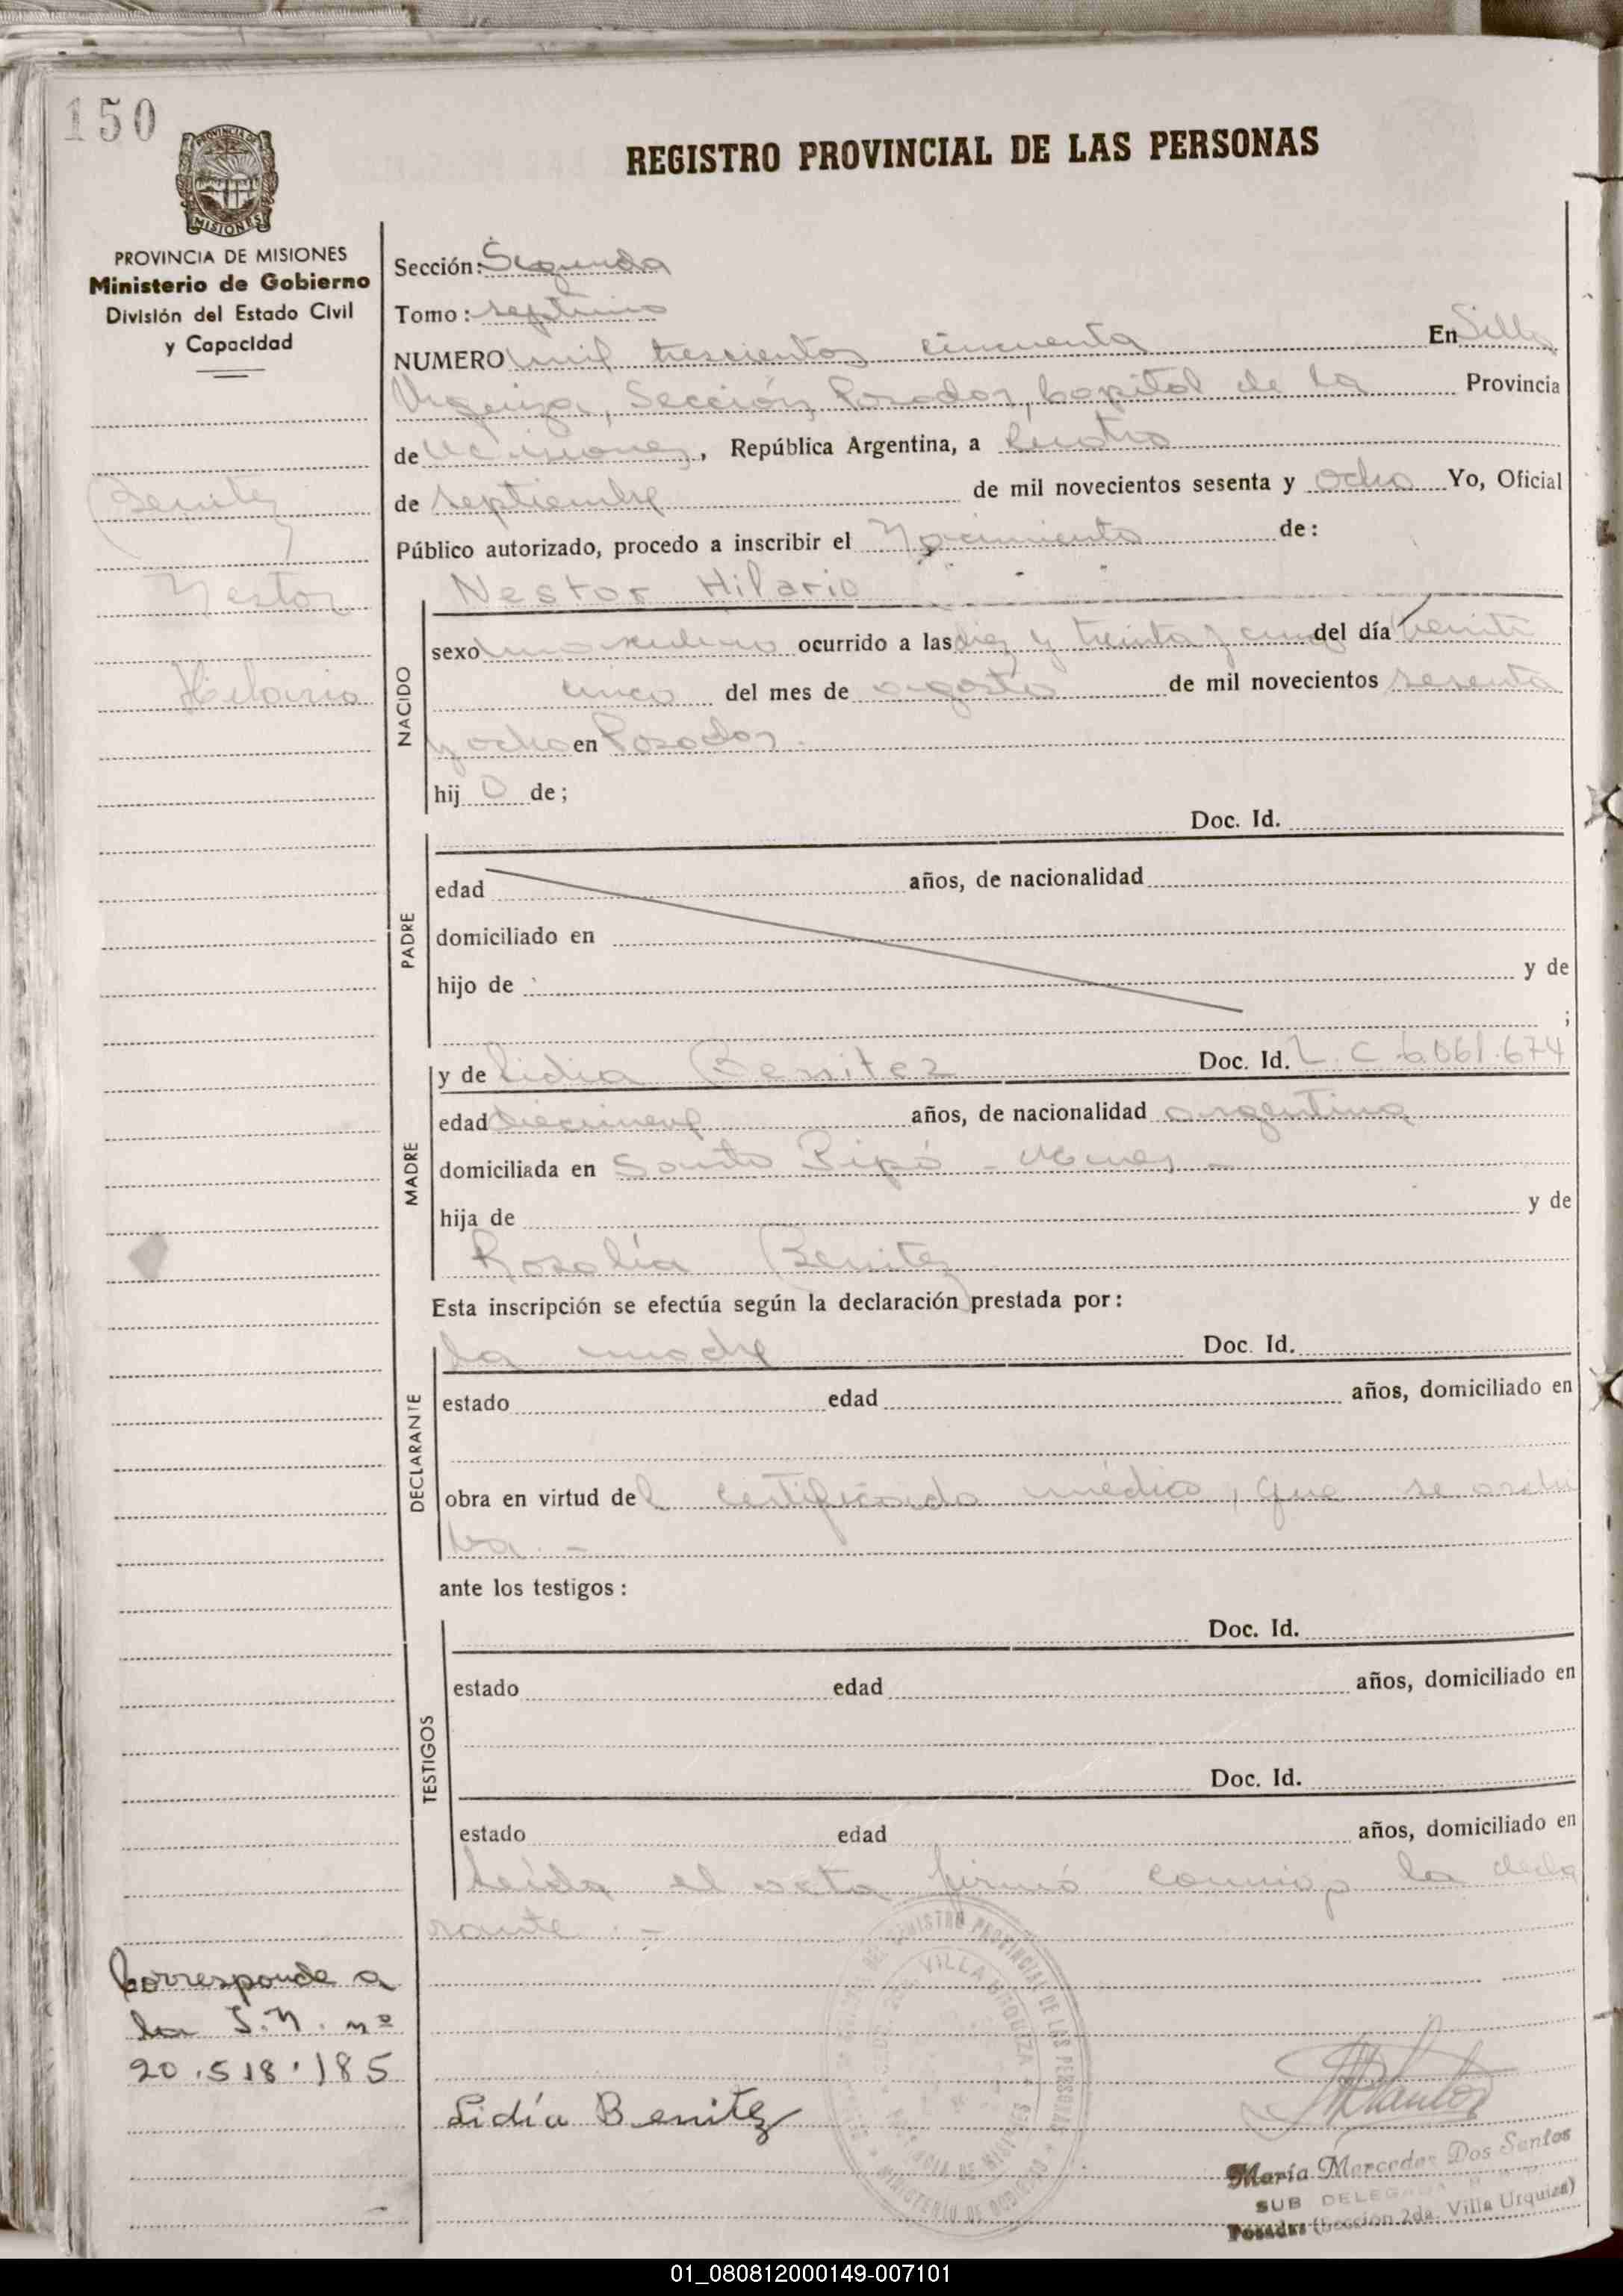 150
PROVINCIA DE
MISIONES
REGISTRO PROVINCIAL DE LAS PERSONAS
PROVINCIA DE MISIONES
Ministerio de Gobierno
División del Estado Civil
y Capacidad
Benitez
Nestor
Hilario
Sección: Segunda
Tomo: septimo
NUMERO mil trescientos cincuenta En Villa
Urquiza, Sección Posadas, Capital de la Provincia
de Misiones, República Argentina, a Cuatro
de septiembre de mil novecientos sesenta y ocho Yo, Oficial
Público autorizado, procedo a inscribir el Nacimiento de:
Nestor Hilario
NACIDO
sexo masculino ocurrido a las diez y treinta y cinco del día veinti
cinco del mes de agosto de mil novecientos sesenta
y ocho en Posadas.
hij o de;
PADRE
Doc. Id.
edad años, de nacionalidad
domiciliado en
hijo de y de
;
MADRE
y de Lidia Benitez Doc. Id. L. C 6.061.674
edad diecinueve años, de nacionalidad argentina
domiciliada en Santo Pipó - Mnes -
hija de y de
Rosalía Benitez
Esta inscripción se efectúa según la declaración prestada por:
DECLARANTE
la madre Doc. Id.
estado edad años, domiciliado en
obra en virtud del certificado médico, que se archi
va. -
ante los testigos:
TESTIGOS
Doc. Id.
estado edad años, domiciliado en
Doc. Id.
estado edad años, domiciliado en
Leída el acta firmó conmigo la decla
rante. -
Corresponde a
la I.N. nº
20.518.185
Lidía Benitez
REGISTRO PROVINCIAL DE LAS PERSONAS
VILLA URQUIZA
MINISTERIO DE GOBIERNO
María Mercedes Dos Santos
SUB DELEGADA
Posadas (Sección 2da. Villa Urquiza)
01_080812000149-007101